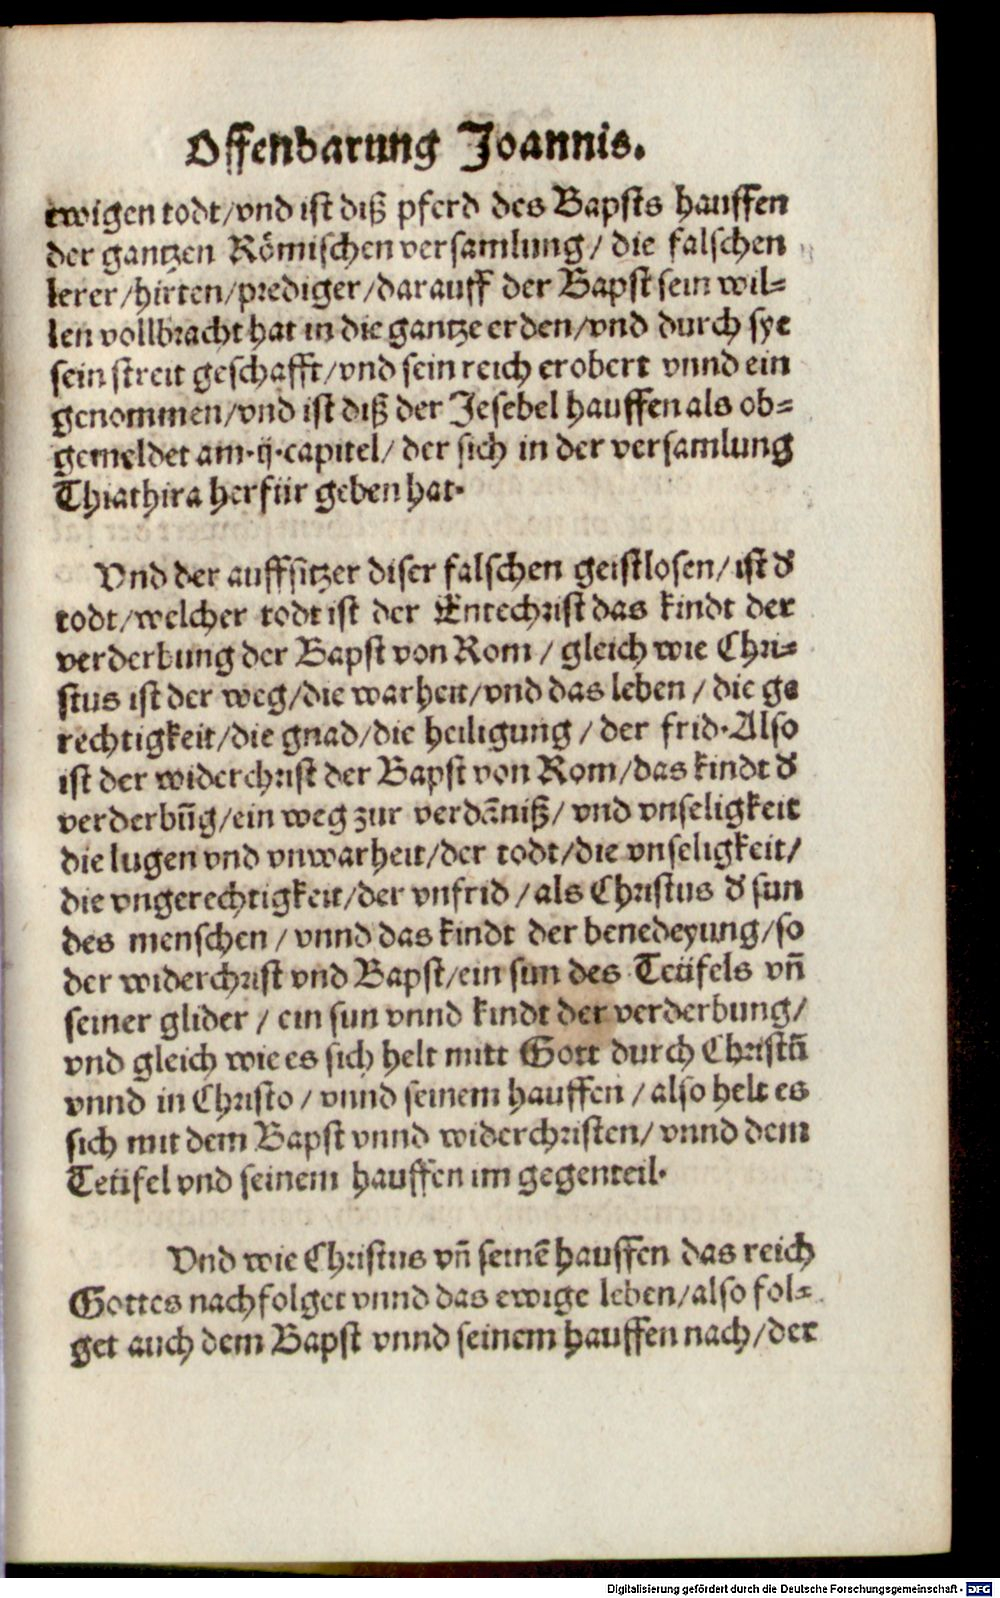 Offenbarung Joannis.
ewigen todt/vnd ist diß pferd des Bapsts hauffen
der gantzen Römischen versamlung/ die falschen
lerer/hirten/prediger/darauff der Bapst sein wil⸗
len vollbracht hat in die gantze erden/vnd durch sye
sein streit geschafft/vnd sein reich erobert vnnd ein
genommen/vnd ist diß der Jesebel hauffen als ob⸗
gemeldet am·ij·capitel/ der sich in der versamlung
Thiathira herfür geben hat·
Vnd der auffsitzer diser falschen geistlosen/ ist đ
todt/welcher todt ist der Entechrist das kindt der
verderbung der Bapst von Rom / gleich wie Chri⸗
stus ist der weg/die warheit/vnd das leben / die ge
rechtigkeit/die gnad/die heiligung / der frid·Also
ist der widerchrist der Bapst von Rom/das kindt đ
verderbūg/ein weg zur verdāniß/ vnd vnseligkeit
die lugen vnd vnwarheit/der todt/die vnseligkeit/
die vngerechtigkeit/der vnfrid / als Christus đ sun
des menschen / vnnd das kindt der benedeyung/so
der widerchrist vnd Bapst/ein sun des Teüfels vñ
seiner glider / ein sun vnnd kindt der verderbung/
vnd gleich wie es sich helt mitt Gott durch Christū
vnnd in Christo / vnnd seinem hauffen / also helt es
sich mit dem Bapst vnnd widerchristen/ vnnd dem
Teüfel vnd seinem hauffen im gegenteil·
Vnd wie Christus vñ seinē hauffen das reich
Gottes nachfolget vnnd das ewige leben/also fol⸗
get auch dem Bapst vnnd seinem hauffen nach/der
Digitalisierung gefördert durch die Deutsche Forschungsgemeinschaft - DFG